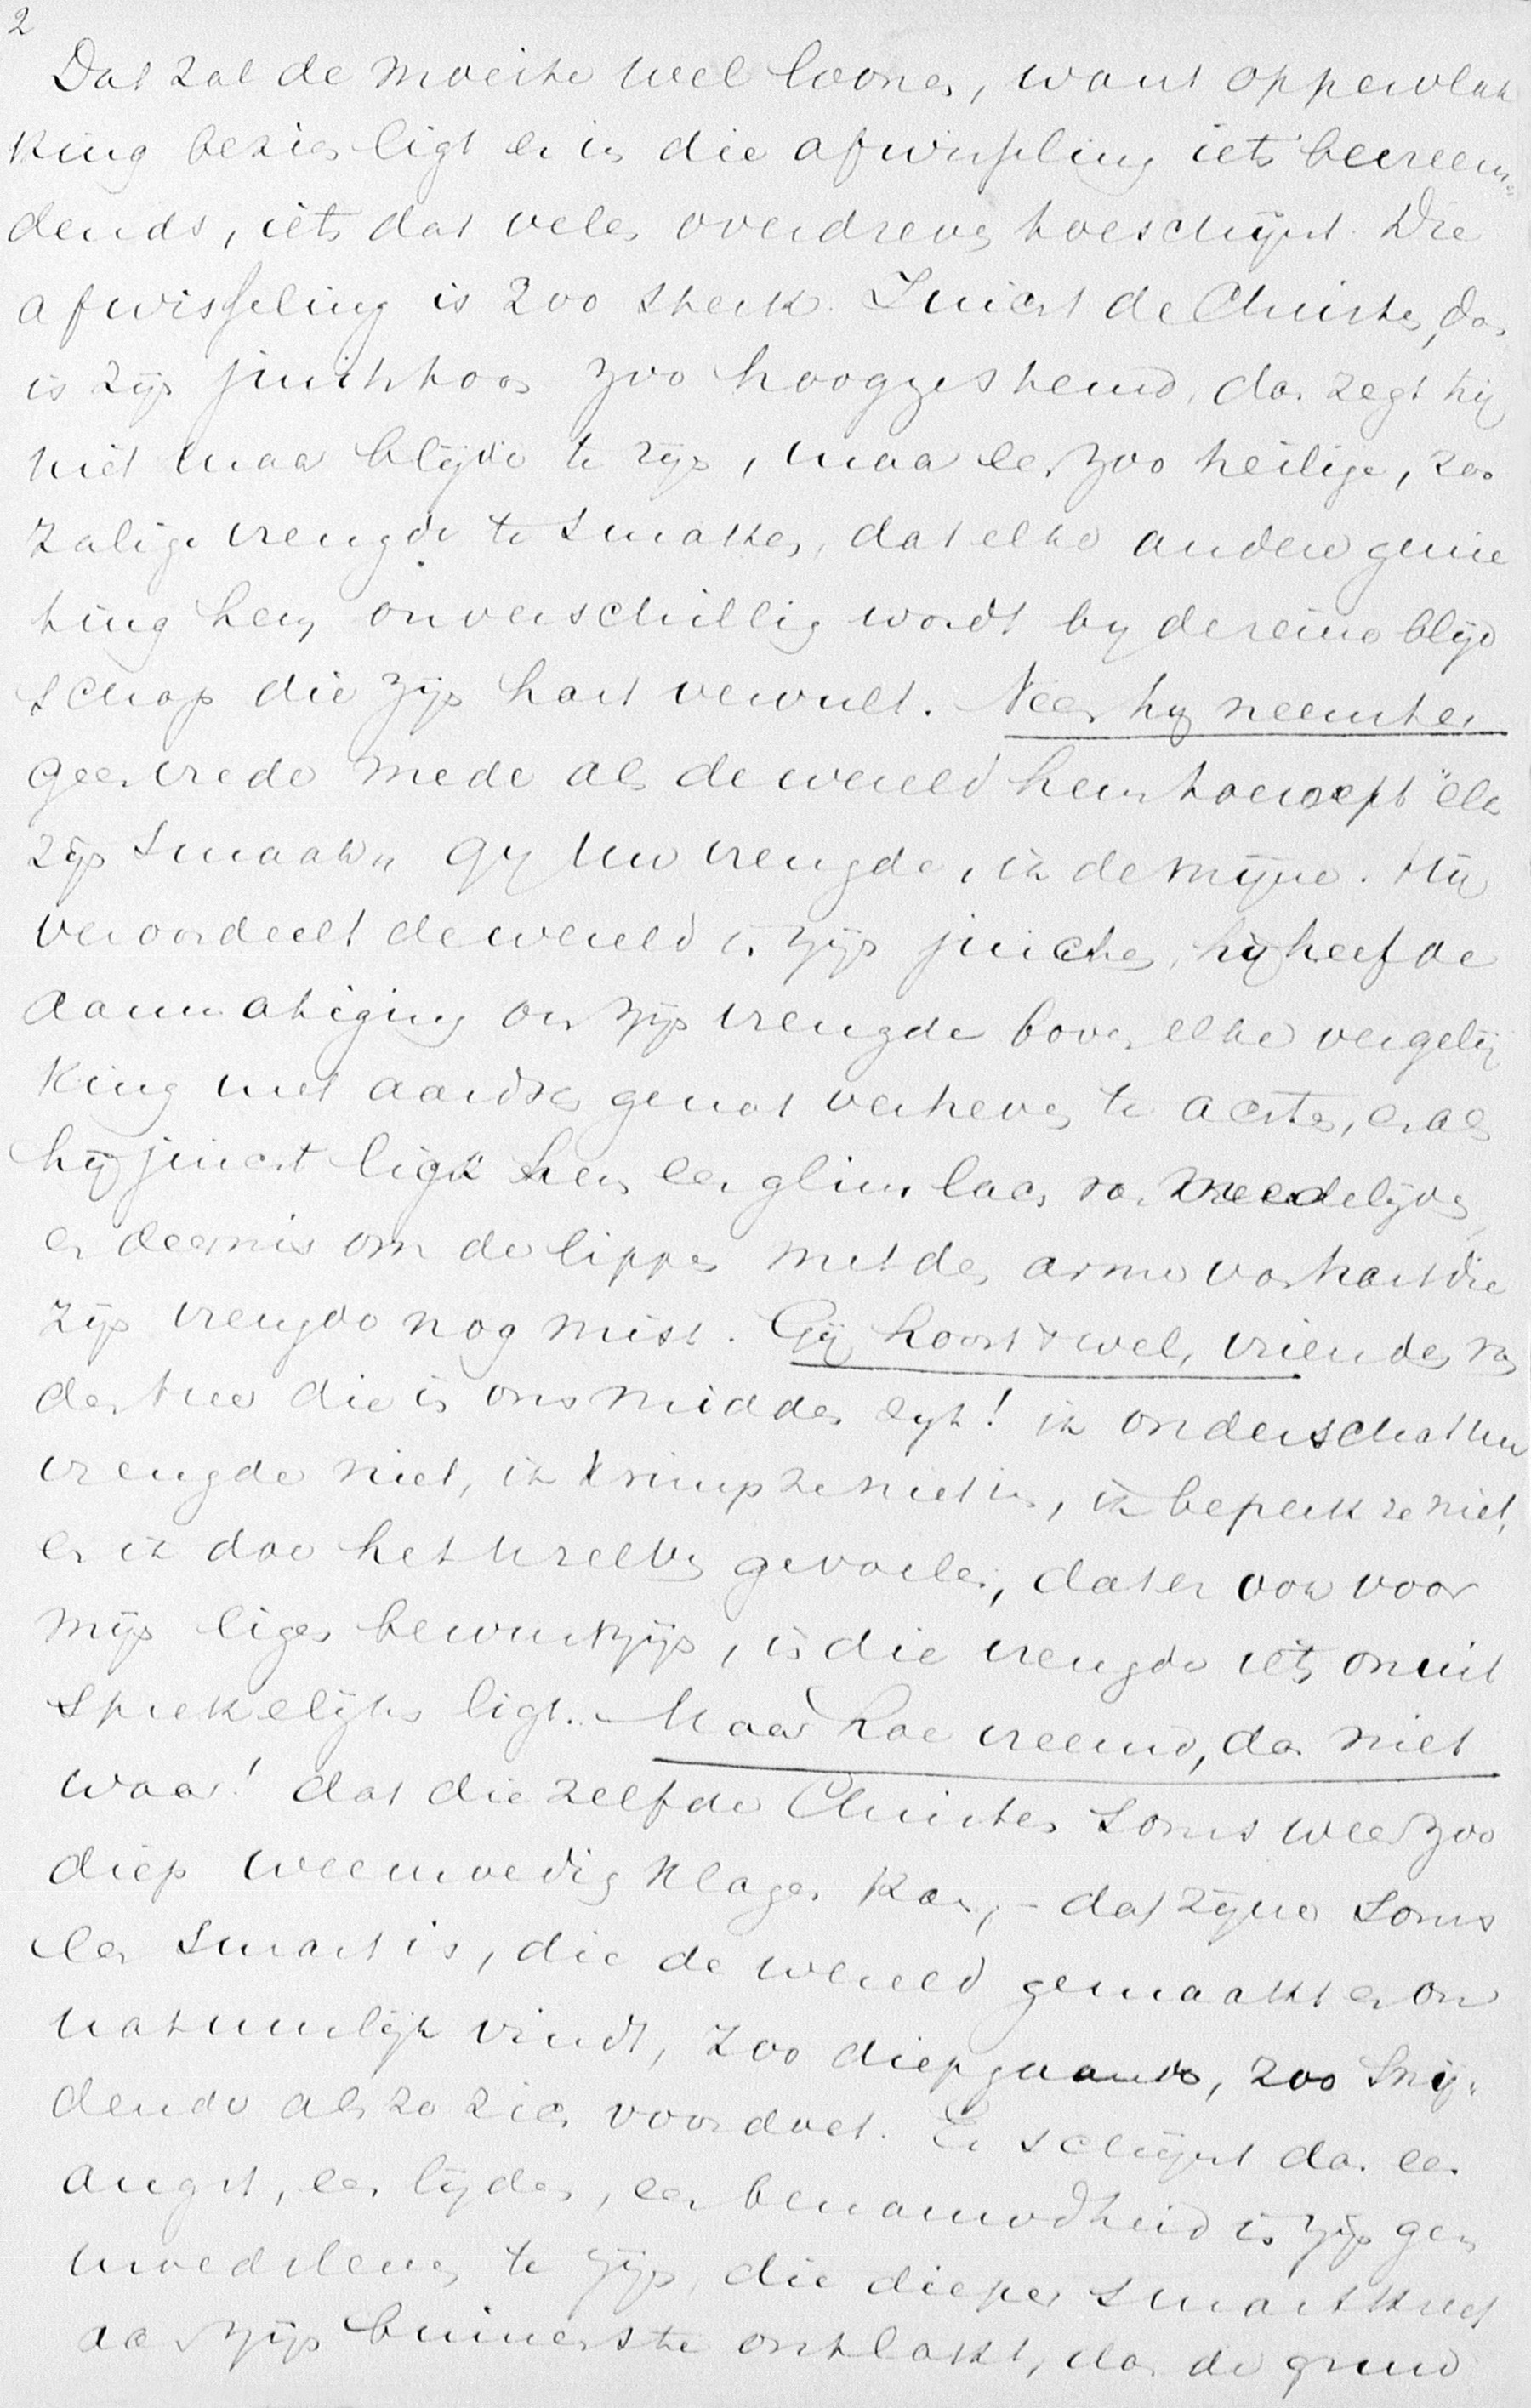 2
Dat zal de moeite wel loonen, want oppervlak
king bezien ligt er in die afwisseling iets bevreem=
dends, iets dat velen overdreven toeschijnt. Die
afwisseling is zoo sterk. Juicht de Christen, dan
is zijn juichtoon zoo hooggestemd, dan zegt hij
niet maar blijde te zijn, maar een zoo heilige, zoo
zalige vreugde te smaken, dat elke andere genie
ting hem onverschillig wordt by de reine blijd
schap die zijn hart vervult. Neen hij neemt er
geen vrede mede als de wereld hem toeroept "elk
zijn smaak" gy uw vreugde, ik de mijne. Hij
veroordeelt de wereld in zijn juichen, hij heeft de
aanmatiging om zijn vreugde boven elke vergelij
king met aardsch genot verheven te achten, en als
hij juicht ligt hem een glimlach van meedelijden
en deernis om de lippen met den arme van hart die
zijn vreugde nog mist. Gij hoort 't wel, vrienden van
den Heer die in ons midden zijt! ik onderschat uw
vreugde niet, ik krimp ze niet in, ik beperk ze niet,
en ik doe het wreeds gevoelen, dat er ook voor
mijn eigen bewustzijn, in die vreugde iets onuit
sprekelijks ligt. Maar hoe vreemd, dan niet
waar! dat diezelfde Christen soms weer zoo
diep weemoedig klagen kan, - dat zijne soms
een smart is, die de wereld gemaakt en on
natuurlijk vindt, zoo diepgaande, zoo snij=
dende als ze zich voordoet. Er schijnt dan een
angst, een lijden, een benauwdheid in zijn ge
moedsleven te zijn, die dieper smartkreet
aan zijn binnenste ontlokt, dan de